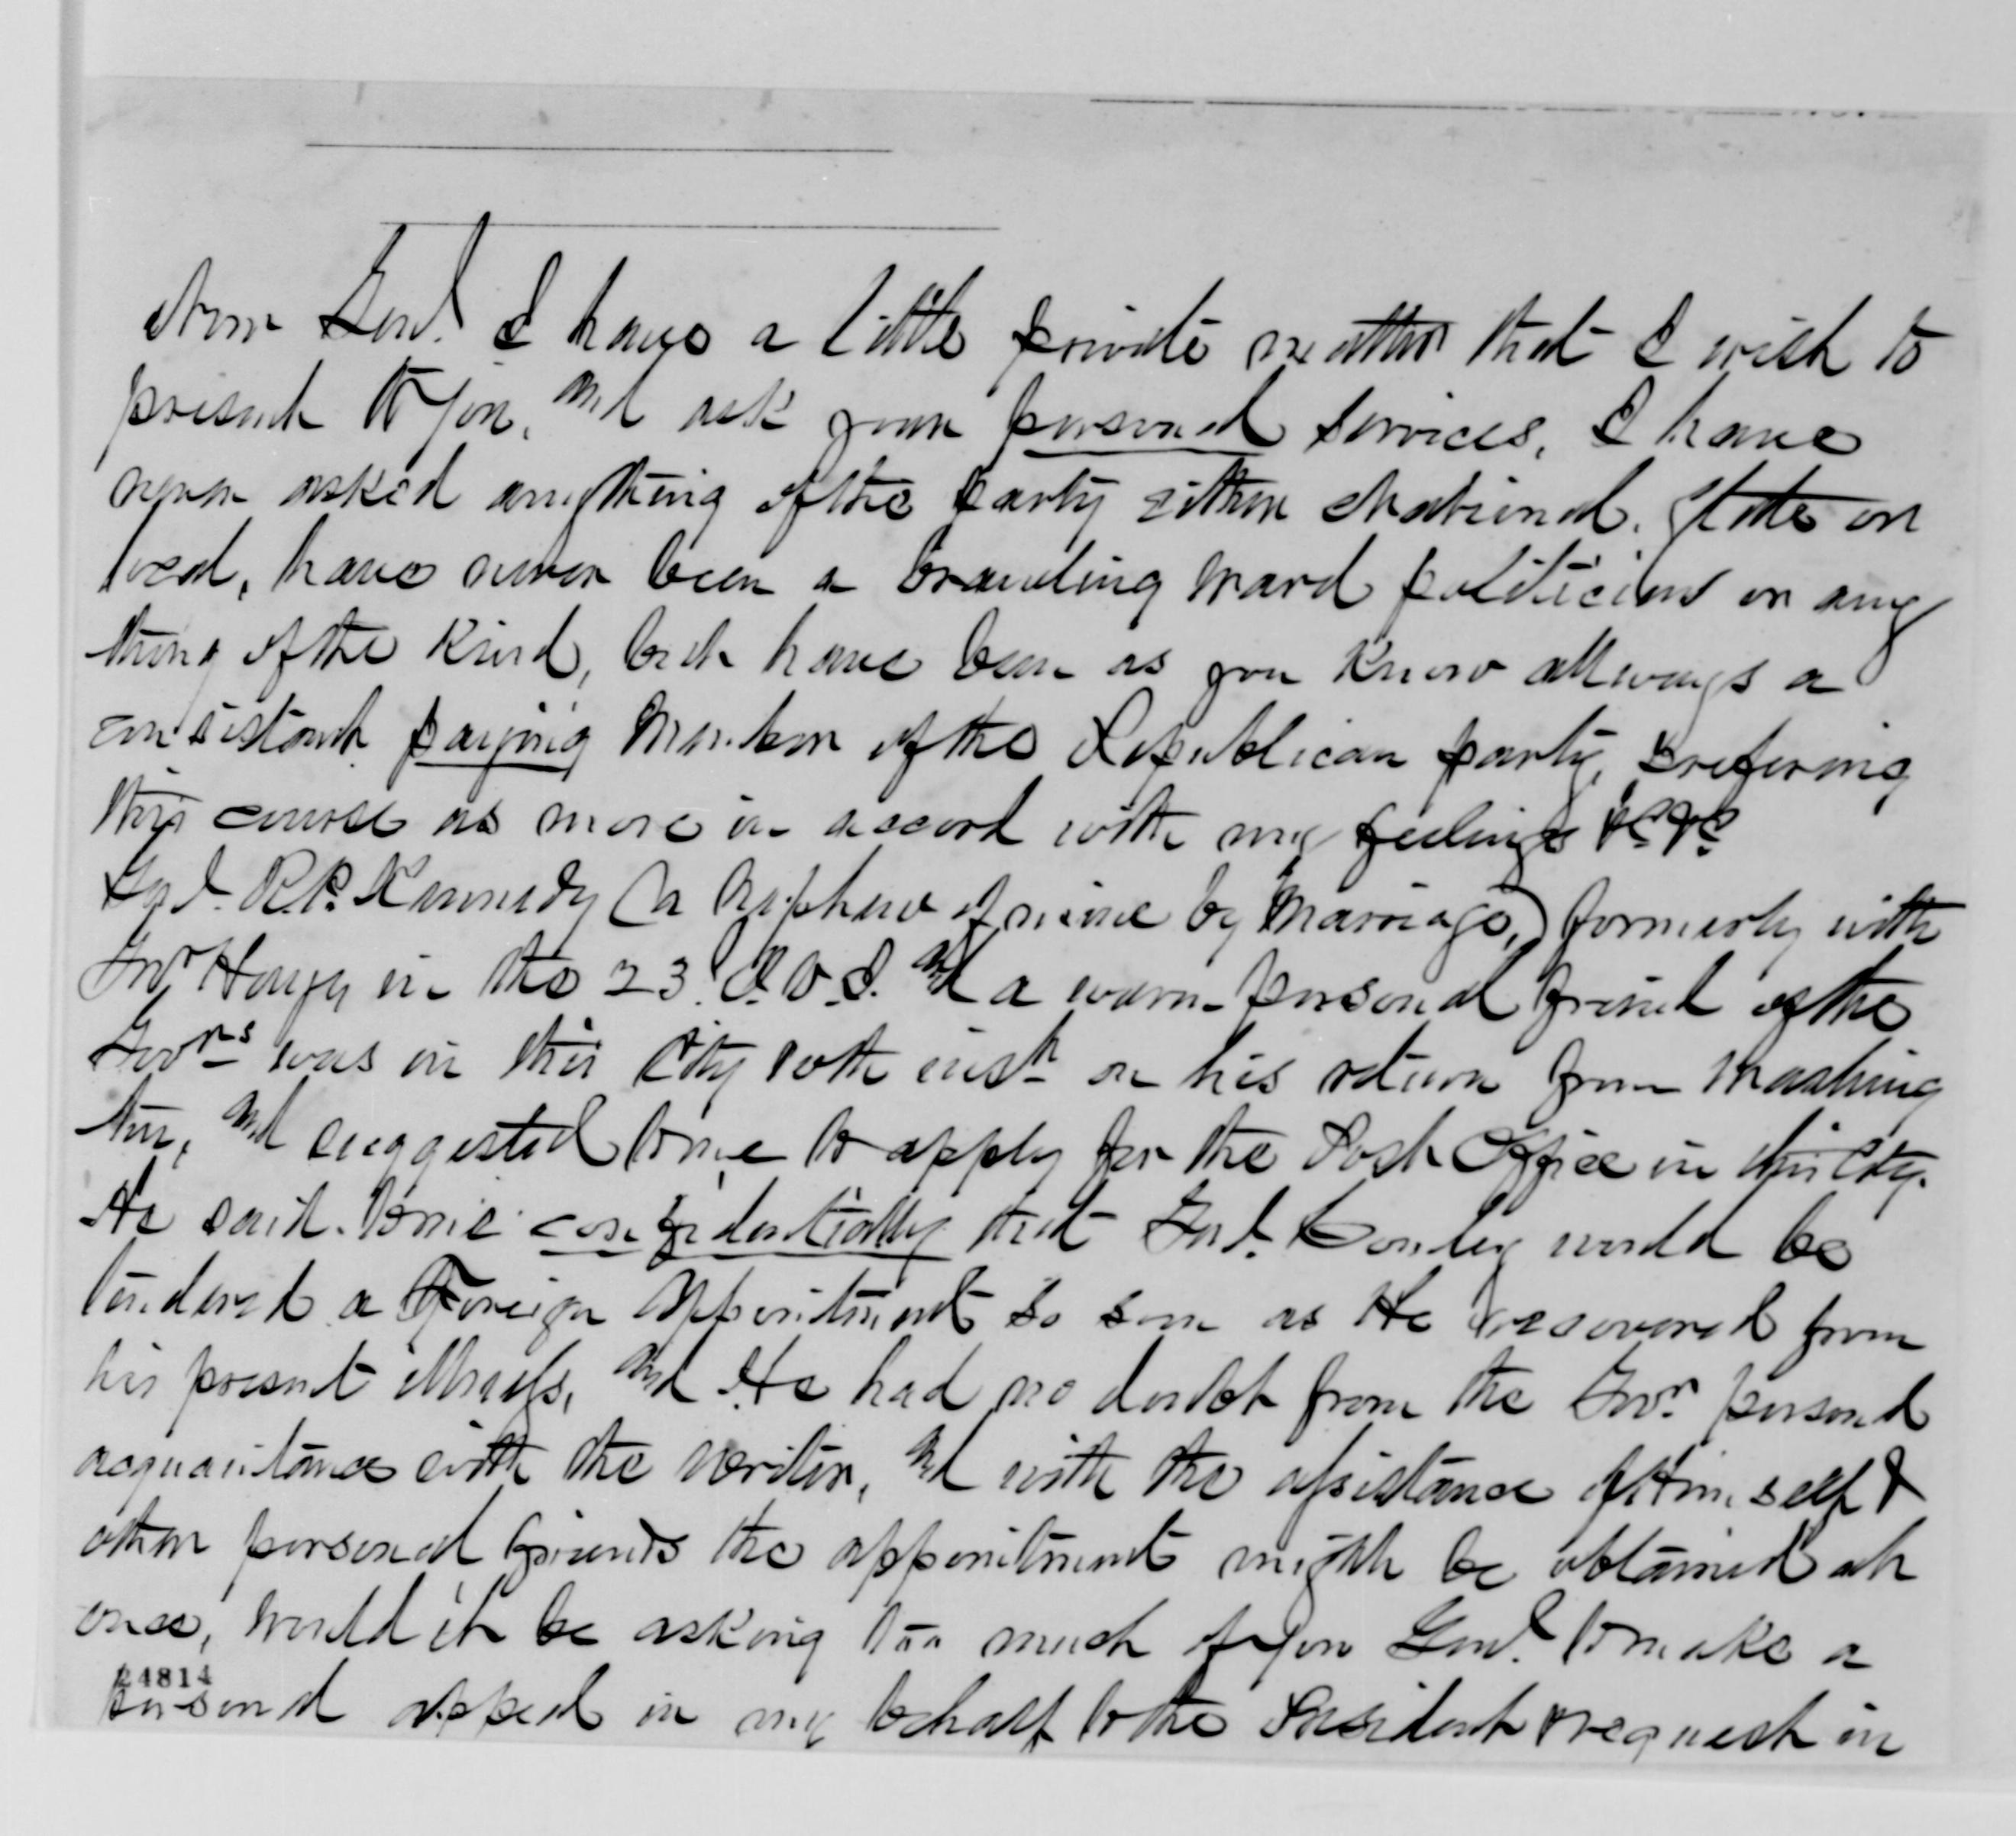 Now Genl. I have a little private matter that I wish to
present to you, and ask your personal services, I have
never asked anything of the party either National, State or
local, have never been a brawling ward politician or any
thing of the kind, but have been as you know allways a
consistant paying member of the Republican party, prefering
this course as more in accord with my feelings &c &c
Genl. R.P. Kennedy (a Nephew of mine by marriage,) formerly with
Govr Hayes in the 23. O.V.I. and a warm personal friend of the
Govrs was in this City 10th inst on his return from Washing
ton, and suggested to me to apply for the Post Office in this City.
He said to me confidentially that Genl. Conley would be
tendered a Foreign appointment so soon as He recovered from
his present illness, and He had no doubt from the Govr personal
acquaintance with the writer, and with the assistance of Himself &
other personal friends the appointment might be obtained at
once, would it be asking too much of you Genl. to make a
24814
personal appeal in my behalf to the President & request in